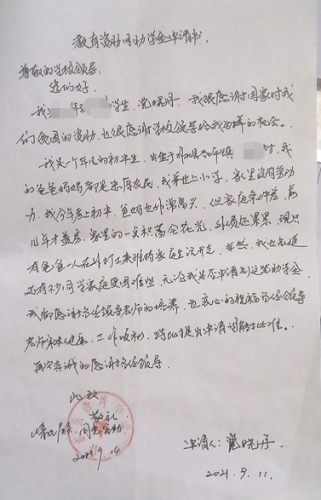 教育资助国助学金申请书
尊敬的学校领导:
您们好。
我 年 学生,党晓丹。我很感谢国家对我
们贫困的资助,也很感谢学校领导给我这样的机会。
我是一个年 的初 生,出生于 镇 村,我
的爸爸妈妈都是 农民,我弟也上小学,家里没有劳动
力,我今年考上初中,爸妈也非常高兴。但家庭条件差,前
几年才盖房,家里的一点积蓄全花光,外债还累累,现只
有爸爸一人在外打工来维持家庭生活开支。 然,我也知道
还有 少同学家庭更困难些,无论我是否申请到这 助学金
我都感谢学校领导老师的培养,也衷心的祝福学校领导
老师身体健康,工作顺利,特此提出申请 批准。
再次真诚的感谢学校领导
此致
敬礼
情况属实,同意
2021.9.14
申请人:党晓丹
2021.9.11.